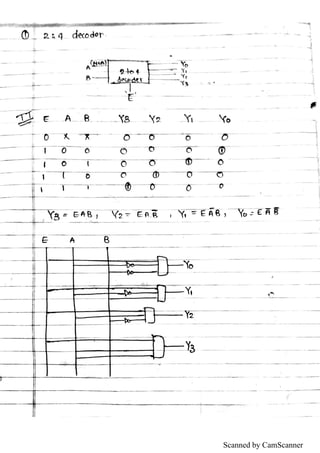 ① 2:4 decoder
(MSB)
A
B
2 to 4
decoder
E
Y0
Y1
Y2
Y3
TT E A B Y3 Y2 Y1 Y0
0 X X 0 0 0 0
1 0 0 0 0 0 ①
1 0 1 0 0 ① 0
1 1 0 0 ① 0 0
1 1 1 ① 0 0 0
Y3 = EAB, Y2 = EAB̅, Y1 = EA̅B, Y0 = EA̅B̅
E A B
Y0
Y1
Y2
Y3
Scanned by CamScanner